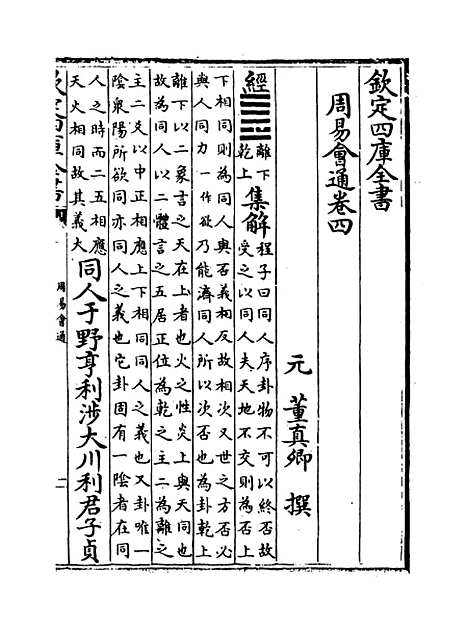 欽定四庫全書
周易會通卷四
元 董真卿 撰
經 ䷌ 離下
乾上 集解 程子曰同人序卦物不可以終否故
受之以同人夫天地不交則為否上
下相同則為同人與否義相反故相次又世之方否必
與人同力一作欲乃能濟同人所以次否也為卦乾上
離下以二象言之天在上者也火之性炎上與天同也
故為同人以二體言之五居正位為乾之主二為離之
主二爻以中正相應上下相同同人之義也又卦唯一
陰衆陽所欲同亦同人之義也它卦固有一陰者在同
人之時而二五相應
天火相同故其義大 同人于野亨利涉大川利君子貞
欽定四庫全書 周易會通